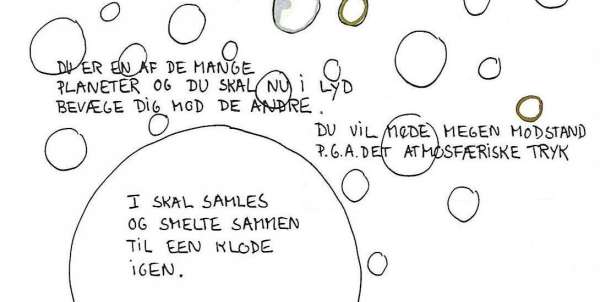 DU ER EN AF DE MANGE
PLANETER OG DU SKAL NU I LYD
BEVÆGE DIG MOD DE ANDRE.
DU VIL MØDE MEGEN MODSTAND
P.G.A. DET ATMOSFÆRISKE TRYK
I SKAL SAMLES
OG SMELTE SAMMEN
TIL EEN KLODE
IGEN.